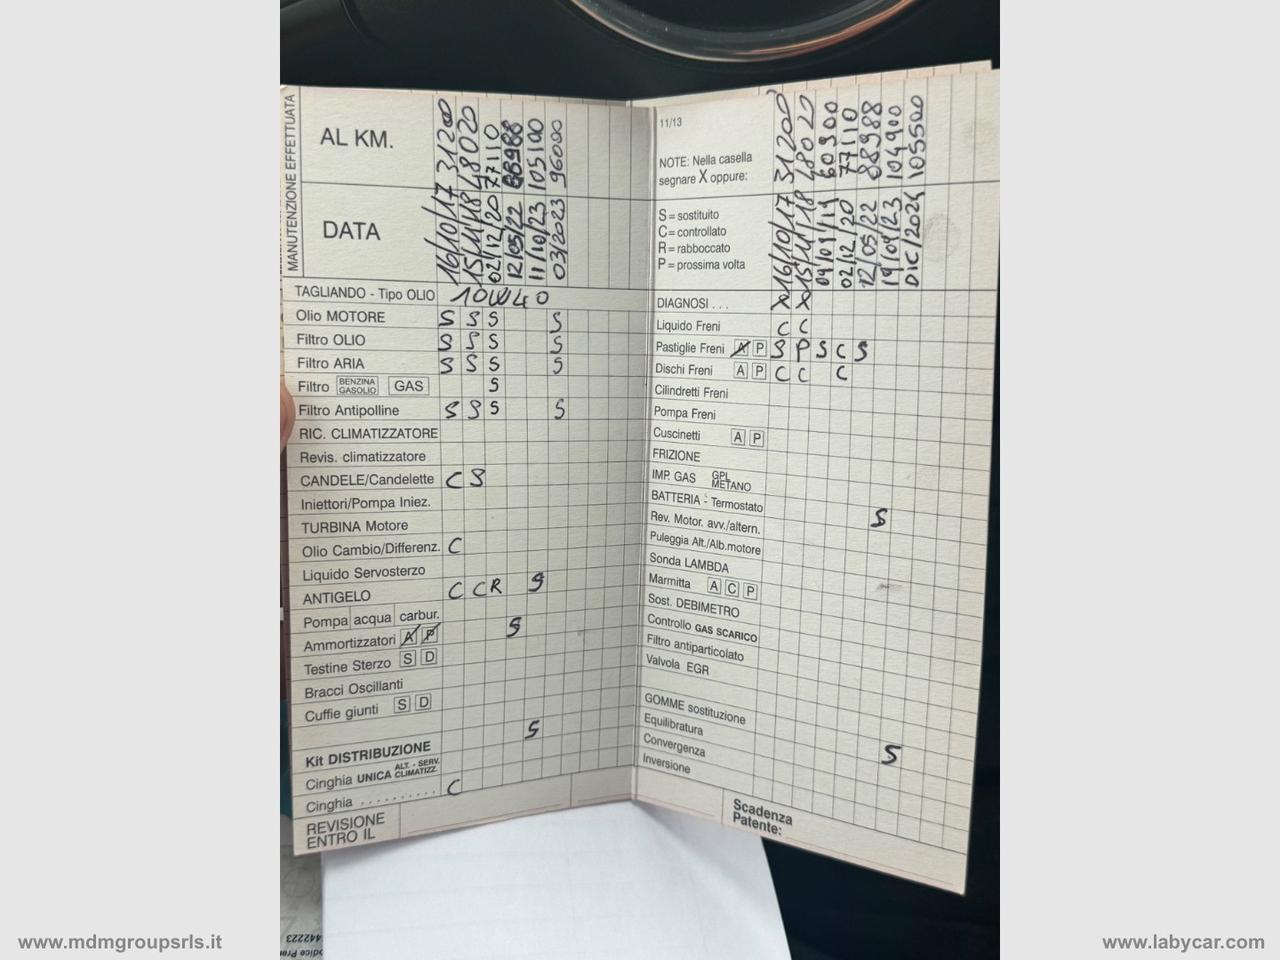 MANUTENZIONE EFFETTUATA
AL KM. 31200 48020 77110 88988 105100 96000
DATA 16/10/17 15/11/18 02/12/20 12/05/22 11/10/23 03/2023
TAGLIANDO - Tipo OLIO 10W40
Olio MOTORE S S S S
Filtro OLIO S S S S
Filtro ARIA S S S S
Filtro BENZINA GASOLIO GAS S
Filtro Antipolline S S S S
RIC. CLIMATIZZATORE
Revis. climatizzatore
CANDELE/Candelette C S
Iniettori/Pompa Iniez.
TURBINA Motore
Olio Cambio/Differenz. C
Liquido Servosterzo
ANTIGELO C C R S
Pompa acqua carbur.
Ammortizzatori A P S
Testine Sterzo S D
Bracci Oscillanti
Cuffie giunti S D
Kit DISTRIBUZIONE S
Cinghia UNICA ALT. - SERV. CLIMATIZZ.
Cinghia .......... C
REVISIONE
ENTRO IL
11/13
31200 48020 60900 77110 88988 104900 105500
NOTE: Nella casella
segnare X oppure:
S = sostituito
C = controllato
R = rabboccato
P = prossima volta
16/10/17 15/11/18 02/12/20 12/05/22 DIC/2024
DIAGNOSI . . . X X
Liquido Freni C C
Pastiglie Freni A P S P S C S
Dischi Freni A P C C C
Cilindretti Freni
Pompa Freni
Cuscinetti A P
FRIZIONE
IMP. GAS GPL METANO
BATTERIA - Termostato S
Rev. Motor. avv./altern.
Puleggia Alt./Alb.motore
Sonda LAMBDA
Marmitta A C P
Sost. DEBIMETRO
Controllo GAS SCARICO
Filtro antiparticolato
Valvola EGR
GOMME sostituzione
Equilibratura
Convergenza S
Inversione
Scadenza
Patente:
www.mdmgroupsrls.it
www.labycar.com